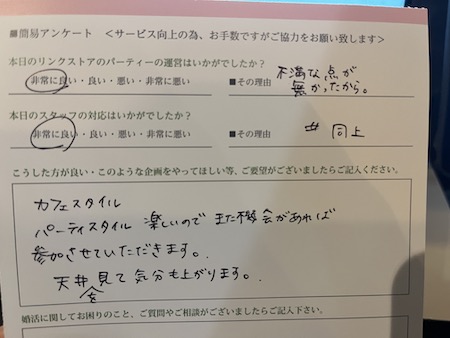 ■簡易アンケート　＜サービス向上の為、お手数ですがご協力をお願い致します＞
本日のリンクストアのパーティーの運営はいかがでしたか？
非常に良い・良い・悪い・非常に悪い　■その理由　不満な点が
無かったから。
本日のスタッフの対応はいかがでしたか？
非常に良い・良い・悪い・非常に悪い　■その理由　〃 同上
こうした方が良い・このような企画をやってほしい等、ご要望がございましたらご記入ください。
カフェスタイル
パーティスタイル 楽しいので また機会があれば
参加させていただきます。
天井を見て気分も上がります。
婚活に関してお困りのこと、ご質問やご相談がございましたらご記入下さい。